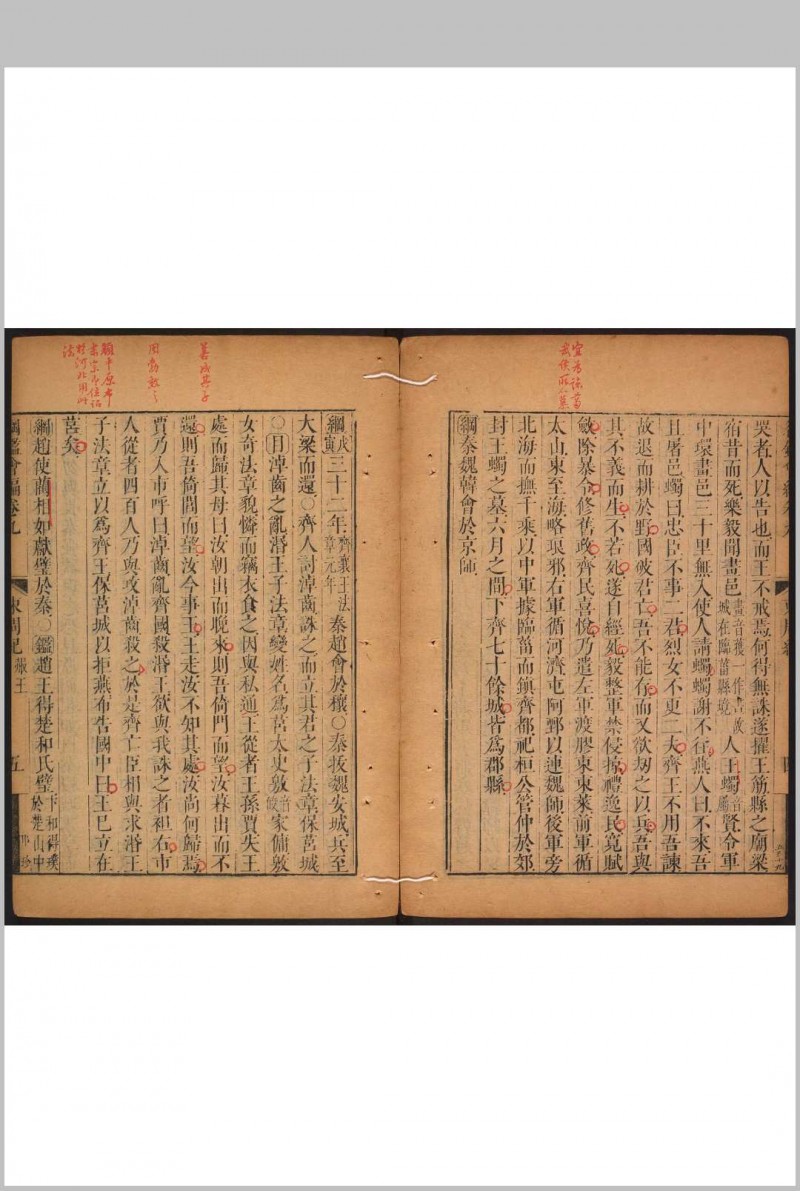 哭者人以告也而王不戒焉何得無誅遂擢王筋縣之廟梁
宿昔而死樂毅聞畫邑畫音獲一作晝故城在臨菑縣境人王蠋音屬賢令軍
中環畫邑三十里無入使人請蠋蠋謝不行燕人曰不來吾
且屠邑蠋曰忠臣不事二君烈女不更二夫齊王不用吾諫
故退而耕於野國破君亡吾不能存而又欲劫之以兵吾與
其不義而生不若死遂自經死毅整軍禁侵掠禮逸民寬賦
斂除暴令修舊政齊民喜悅乃遣左軍渡膠東東萊前軍循
太山東至海略琅邪右軍循河濟屯阿鄄以連魏師後軍旁
北海而撫千乘以中軍據臨菑而鎮齊都祀桓公管仲於郊
封王蠋之墓六月之間下齊七十餘城皆爲郡縣
綱秦魏韓會於京師
戊寅
綱三十二年齊襄王法章元年秦趙會於穰○秦拔魏安城兵至
大梁而還○齊人討淖齒誅之而立其君之子法章保莒城
○目淖齒之亂湣王子法章變姓名爲莒太史敫音皎家傭敫
女奇法章貌憐而竊衣食之因與私通王從者王孫賈失王
處而歸其母曰汝朝出而晚來則吾倚門而望汝暮出而不
還則吾倚閭而望汝今事王王走汝不知其處汝尚何歸焉
賈乃入市呼曰淖齒亂齊國殺湣王欲與我誅之者袒右市
人從者四百人乃與攻淖齒殺之於是齊亡臣相與求湣王
子法章立以爲齊王保莒城以拒燕布告國中曰王已立在
莒矣
綱趙使藺相如獻璧於秦○鑑趙王得楚和氏璧卞和得璞於楚山中
綱鑑會編卷九
東周紀赧王
五